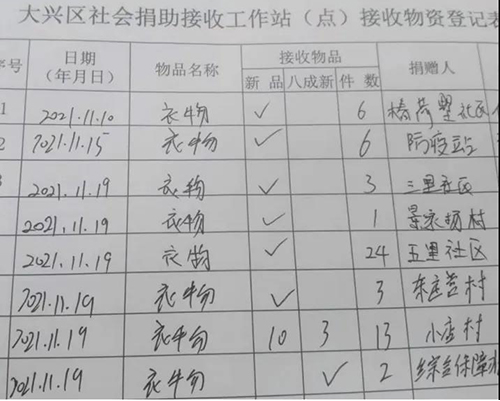 大兴区社会捐助接收工作站（点）接收物资登记表
序号 日期（年月日） 物品名称 接收物品 捐赠人
新品 八成新 件数
1 2021.11.10 衣物 ✓ 6 社区
2 2021.11.15 衣物 ✓ 6 防疫站
3 2021.11.19 衣物 ✓ 3 三里社区
2021.11.19 衣物 ✓ 1 村
2021.11.19 衣物 ✓ 24 五里社区
2021.11.19 衣物 ✓ 3 村
2021.11.19 衣物 10 3 13 小店村
2021.11.19 衣物 ✓ 2 综合保障